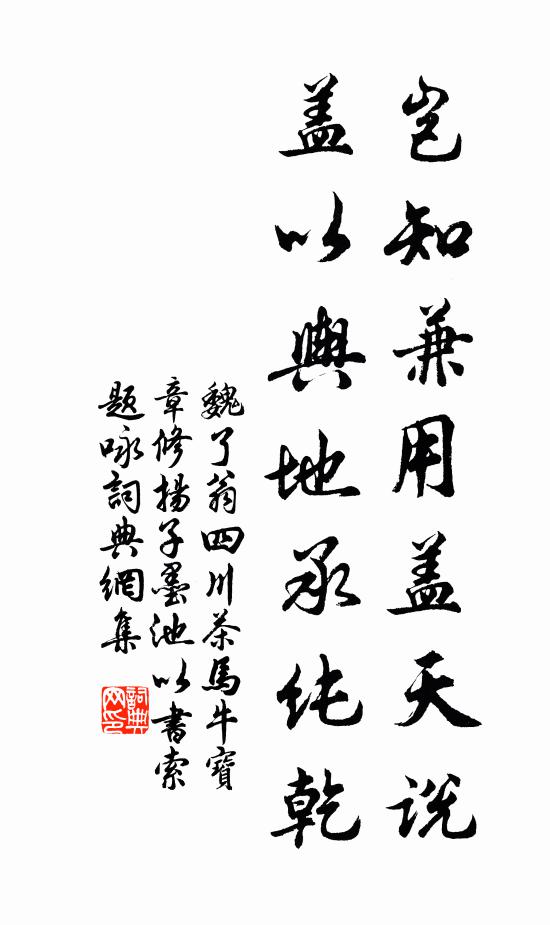 岂知兼用盖天说
盖以輿地承纯乾
魏了翁四川茶馬牛寶
章修揚子墨池以書索
題咏詞典網集
詞典网印